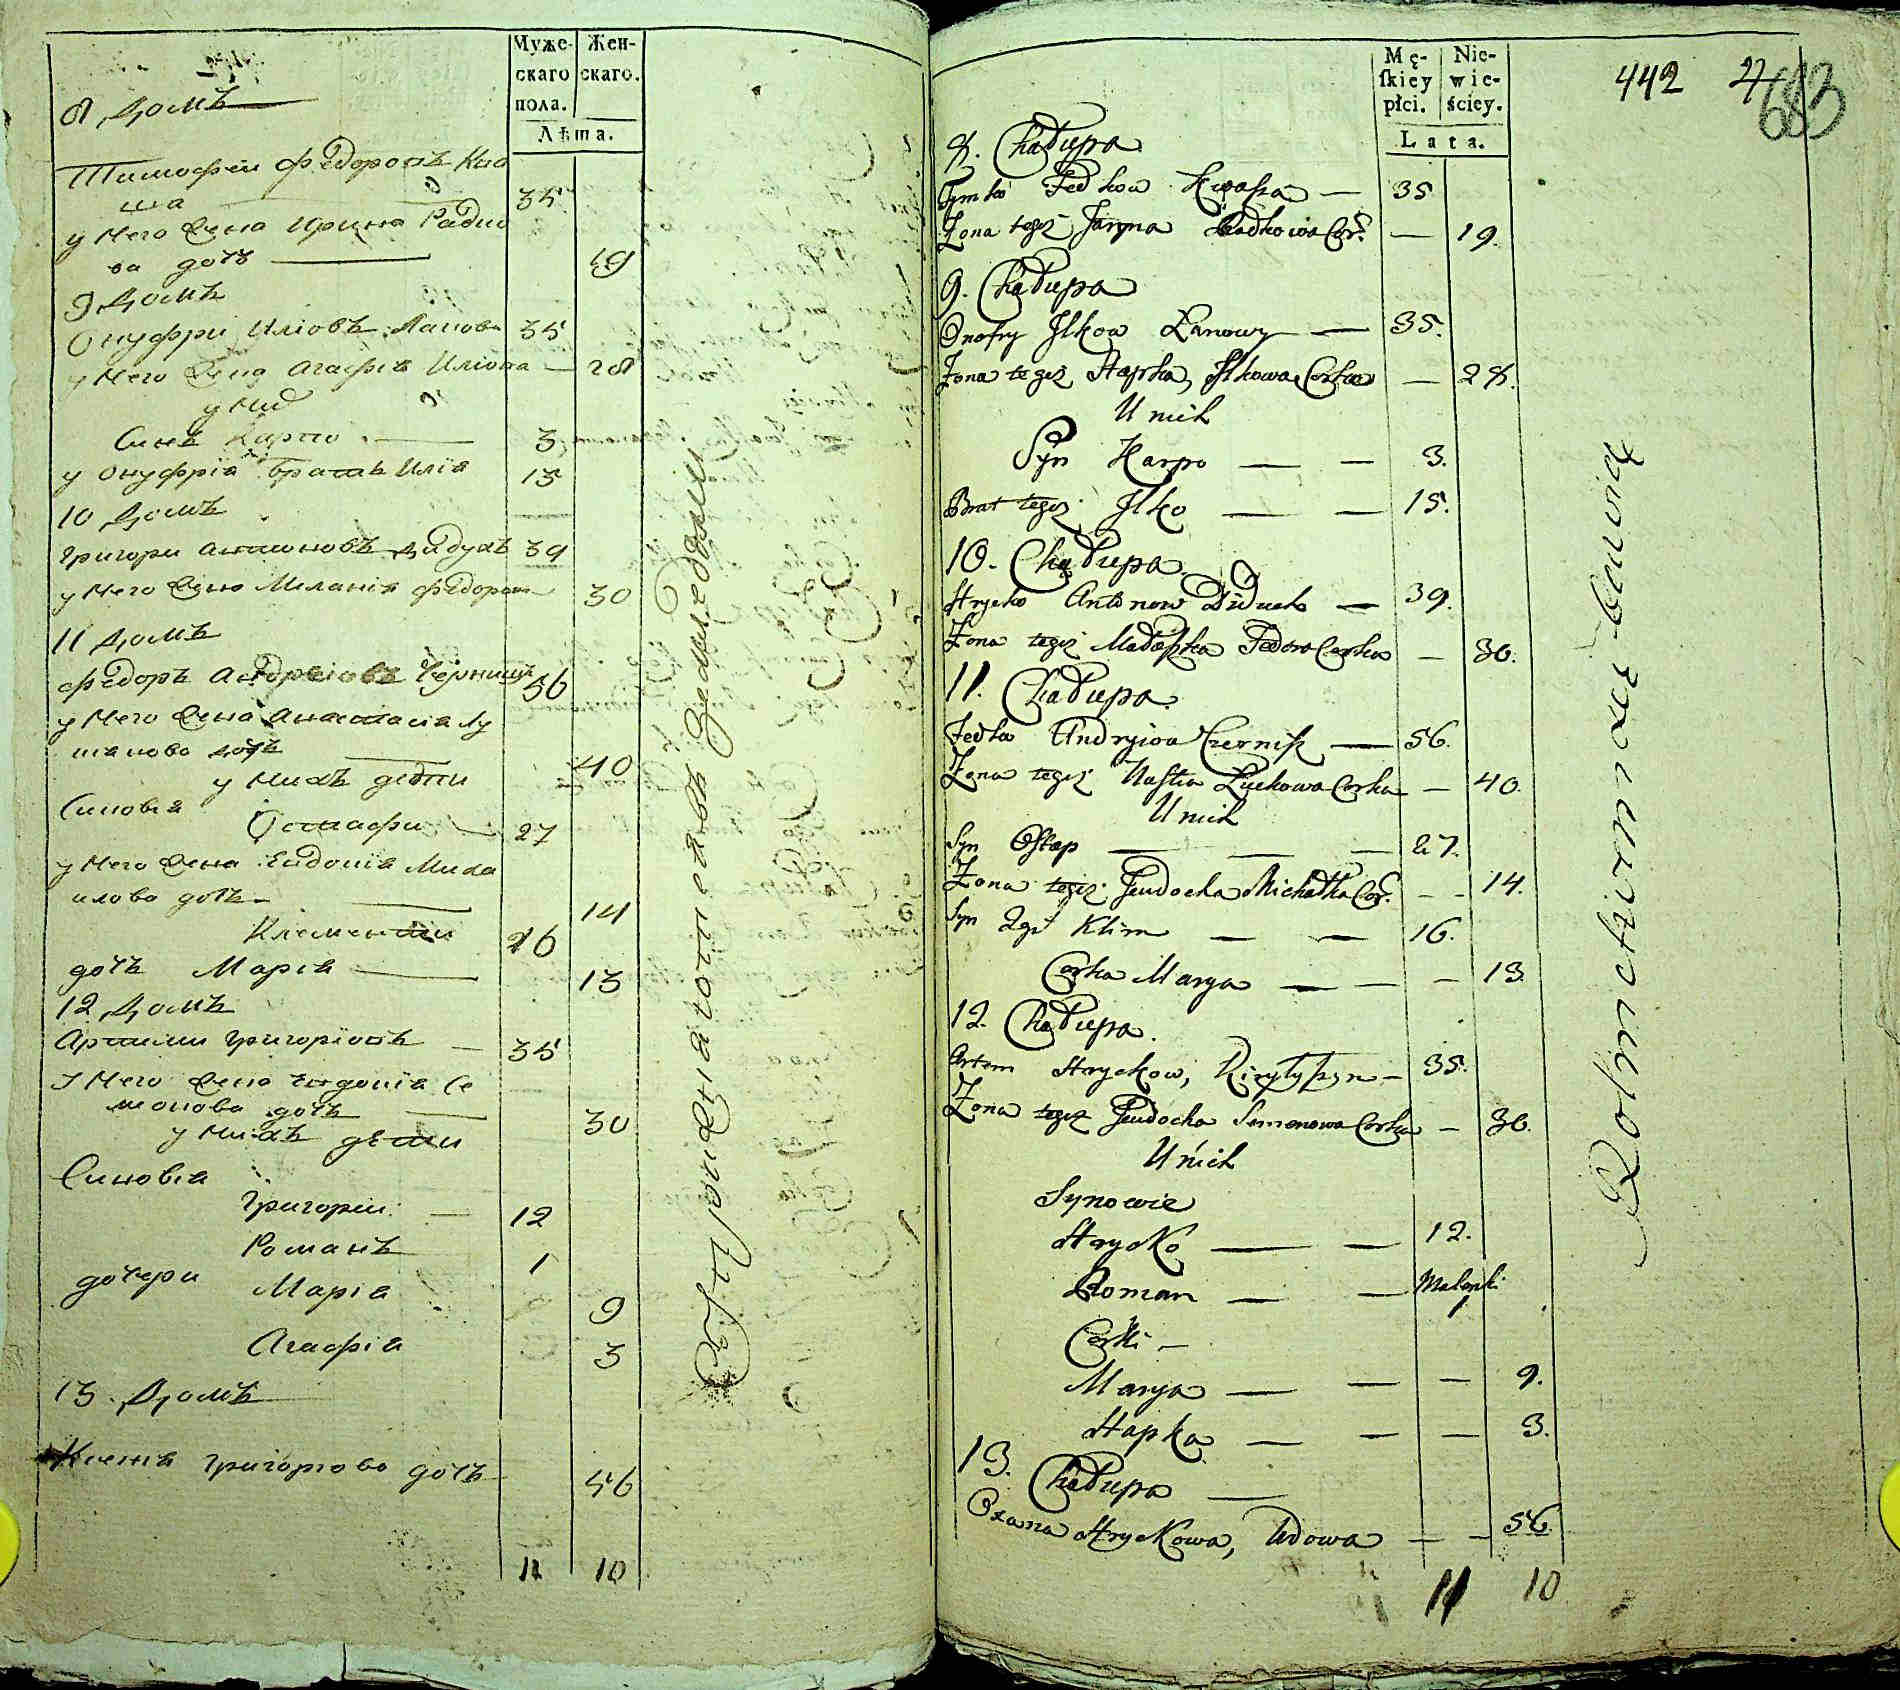 Муже-
скаго
пола.
Жен-
скаго.
Лѣта.
8 домъ
Тимофей Федоровъ Ква
ша 35
у него жена Ирина Радко
ва дочь 19
9 домъ
Онуфри Илковъ Ланова 35
у него жена Агафія Илкова 28
у них
Синъ Карпо 3
у Онуфрія братъ Илія 15
10 домъ
Григори Антоновъ дидухъ 39
у него жена Меланія Федорова 30
11 домъ
Федоръ Андреіовъ Чернишъ 56
у него жена Анастасиа Лу
дочь 40
у нихъ дѣти
Синовья
Остафи 27
у него жена Евдокія Миха
илова дочь 14
Клементи 16
дочь Марія 13
12 домъ
Артеми Григоріовъ 35
у него жена Евдокія Се
монова дочь 30
у нихъ дѣти
Синовья
Григорій 12
Романъ 1
дочери Марія 9
Агафія 3
13 домъ
Григоріова дочь 56
11 10
Mę-
ſkiey
płci.
Nie-
wie-
ściey.
Lata.
442
683
8. Chałupa
Tymko Fedkow Kwasza — 35
Zona tegoż Jaryna Radkowa Cor: — 19.
9. Chałupa
Onofry Ilkow Łanowy — 35.
Zona tegoż Hapka, Ilkowa Corka — 28.
U nich
Syn Karpo — — 3.
Brat tegoż Ilko — — 15.
10. Chałupa
Hrycko Antonow Diduch — 39.
Zona tegoż Małaszka Fedora Corka — 30.
11. Chałupa
Fedko Andryiow Czernisz — 56.
Zona tegoż Nastia Luckowa Corka — 40.
U nich
Syn Ostap — — — 27.
Zona tegoż Jeudocha Michałka Cor: — - 14.
Syn 2gi Klim — — 16.
Corka Marya — — — 13.
12. Chałupa.
Artem Hryckow, — 35.
Zona tegoż Jeudocha Semenowa Corka — 30.
U nich
Synowie
Hrycko — — 12.
Roman — — 1
Corki —
Marya — — — 9.
Hapka — — — 3.
13. Chałupa —
Oxana Hryckowa, Wdowa — — 56.
11 10